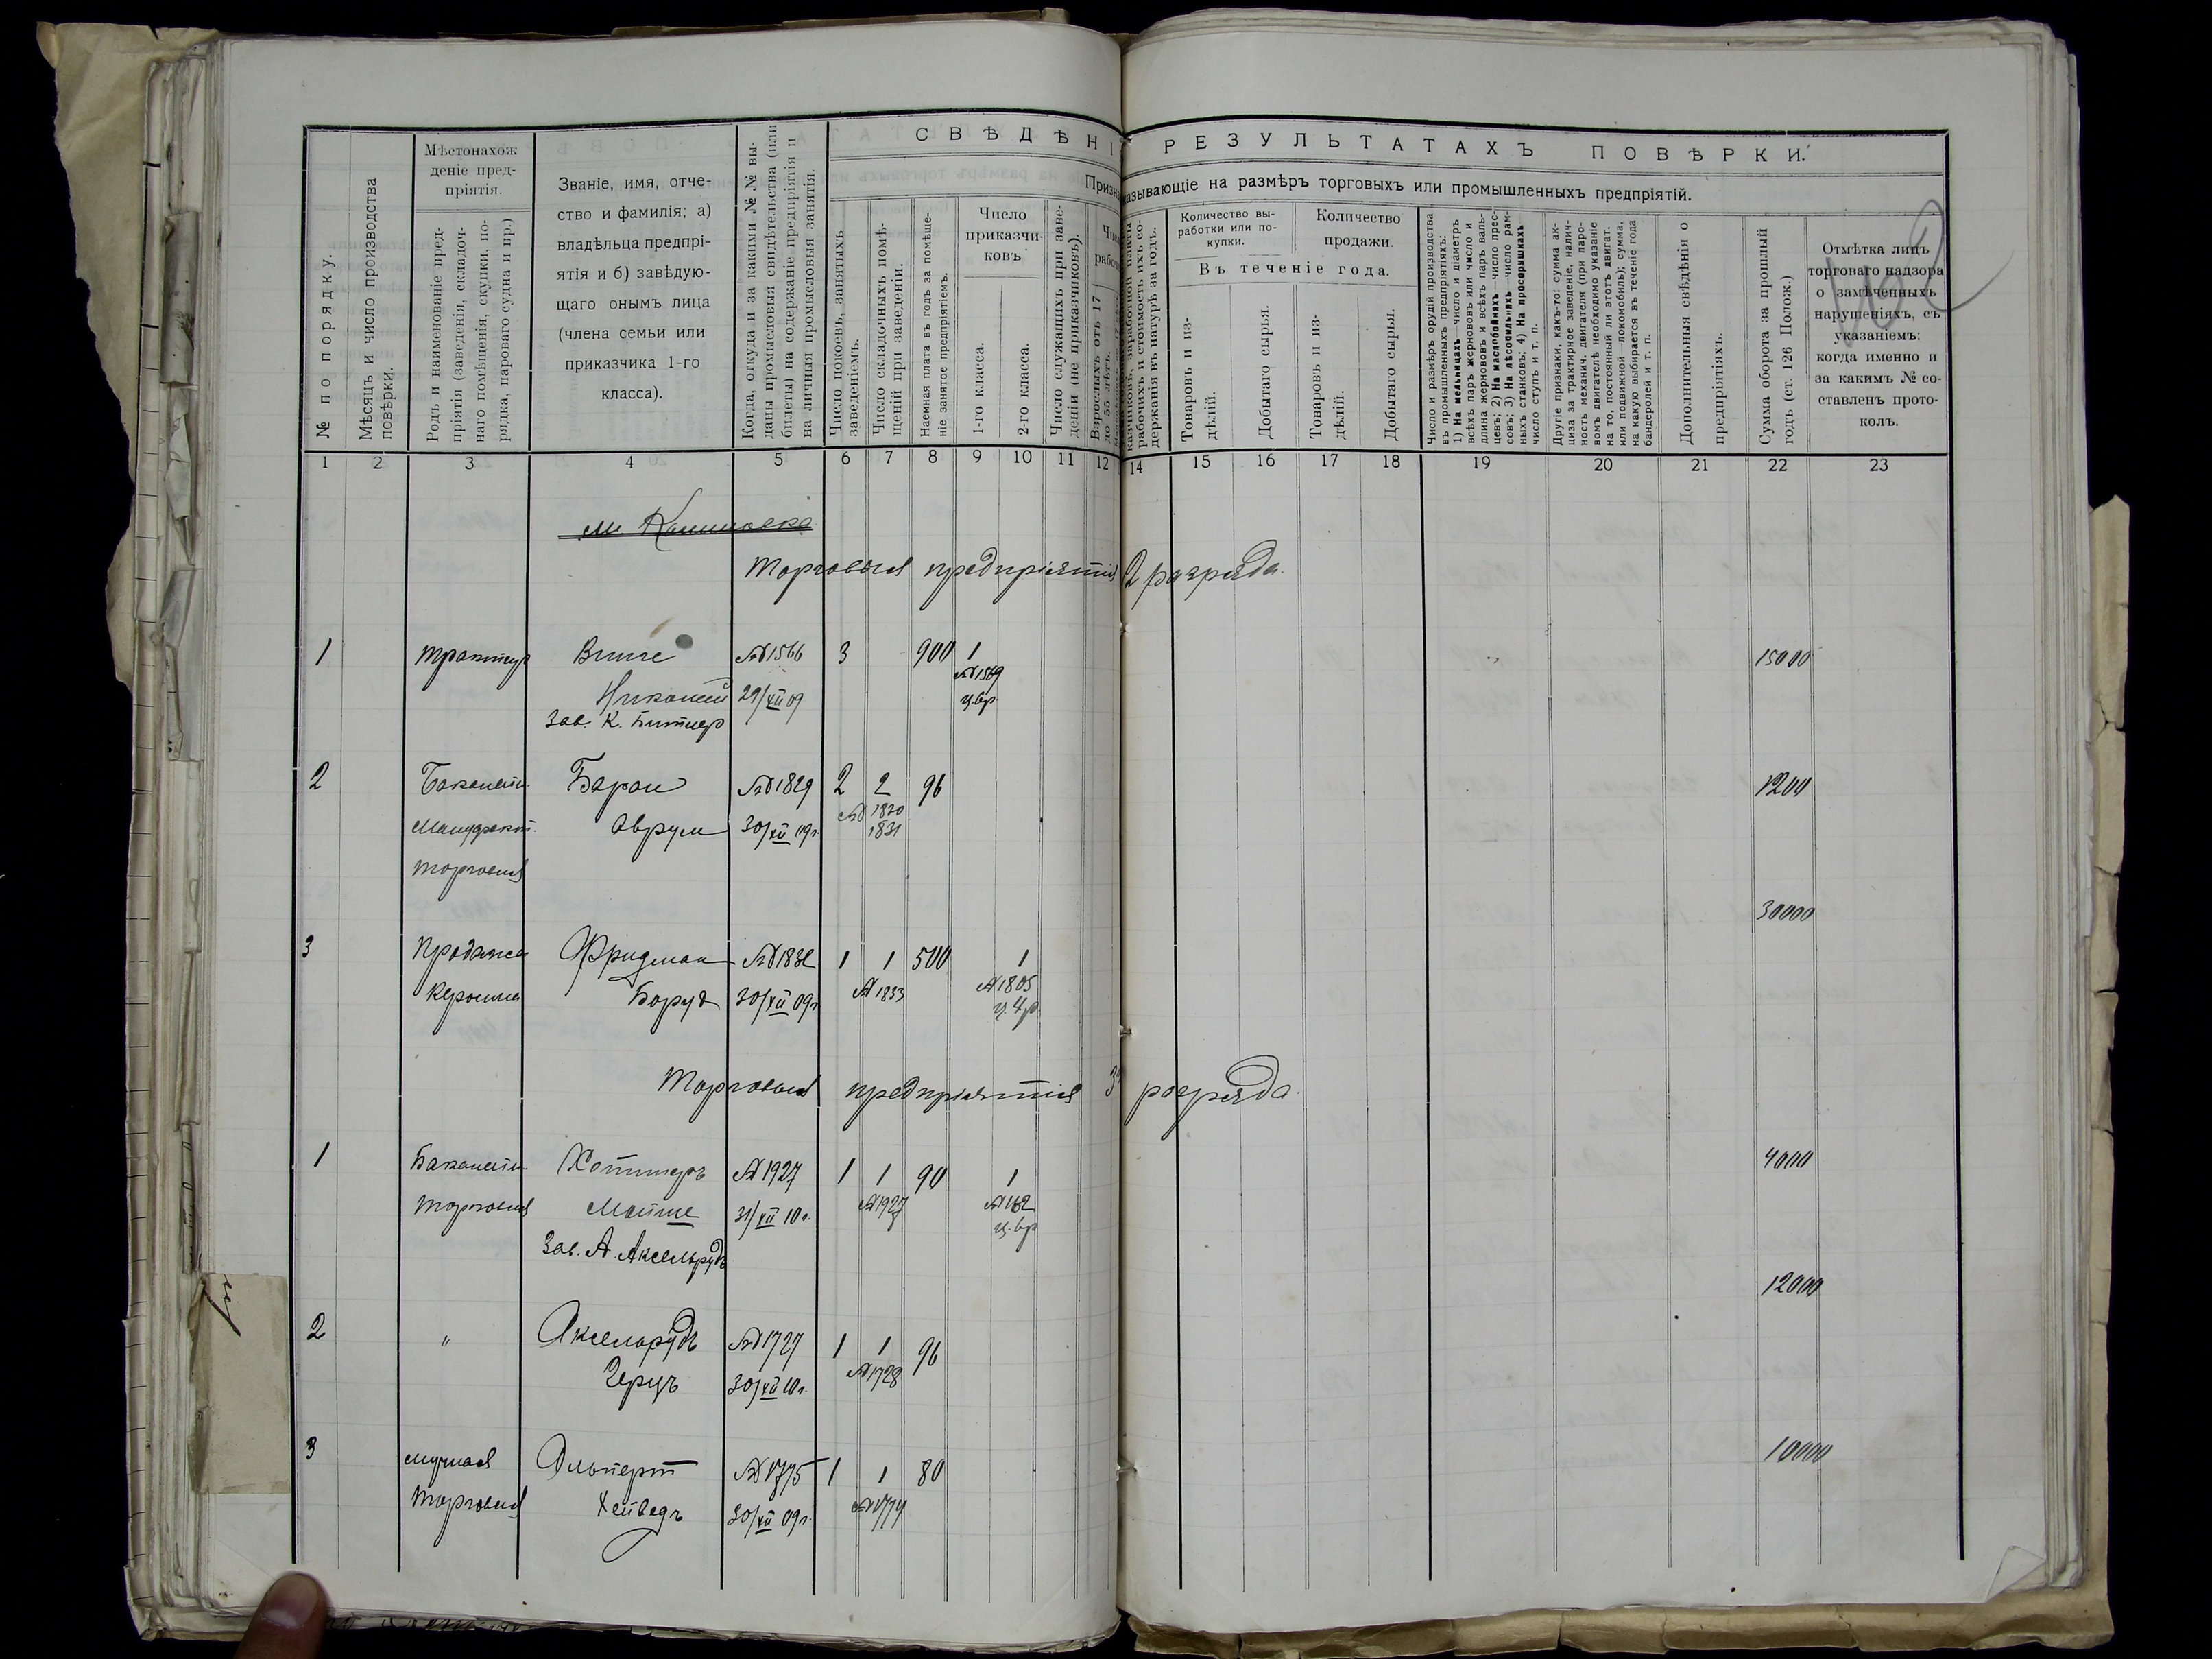 СВѢДѢНІ РЕЗУЛЬТАТАХЪ ПОВѢРКИ.
Призна казывающіе на размѣръ торговыхъ или промышленныхъ предпріятій.
№ по порядку.
Мѣсяцъ и число производства
повѣрки.
Мѣстонахож
деніе пред-
пріятія.
Родъ и наименованіе пред-
пріятія (заведенія, складоч-
наго помѣщенія, скупки, по-
рядка, пароваго судна и пр.)
Званіе, имя, отче-
ство и фамилія; а)
владѣльца предпрі-
ятія и б) завѣдую-
щаго онымъ лица
(члена семьи или
приказчика 1-го
класса).
Когда, откуда и за какими №№ вы-
даны промысловыя свидѣтельства (или
билеты) на содержаніе предпріятія и
на личныя промысловыя занятія.
Число покоевъ, занятыхъ
заведеніемъ.
Число складочныхъ помѣ-
щеній при заведеніи.
Наемная плата въ годъ за помѣще-
ніе занятое предпріятіемъ.
Число
приказчи-
ковъ
1-го класса.
2-го класса.
Число служащихъ при заве-
деніи (не приказчиковъ).
Чис
рабоч
Взрослыхъ отъ 17
до 55 лѣтъ.
казчиковъ, заработной платы
рабочихъ и стоимость ихъ со-
держанія въ натурѣ за годъ.
Количество вы-
работки или по-
купки.
Количество
продажи.
Въ теченіе года.
Товаровъ и из-
дѣлій.
Добытаго сырья.
Товаровъ и из-
дѣлій.
Добытаго сырья.
Число и размѣръ орудій производства
въ промышленныхъ предпріятіяхъ:
1) На мельницахъ число и діаметръ
всѣхъ паръ жернововъ или число и
длина жернововъ и всѣхъ паръ валь-
цевъ; 2) На маслобойняхъ число прес-
совъ; 3) На лѣсопильняхъ число рам-
ныхъ станковъ; 4) На просорушкахъ
число ступъ и т. п.
Другіе признаки, какъ-то: сумма ак-
циза за трактирное заведеніе, налич-
ность механич. двигателя (при паро-
вомъ двигателѣ необходимо указаніе
на то, постоянный ли этотъ двигат.
или подвижной локомобиль); сумма,
на какую выбирается въ теченіе года
бандеролей и т. п.
Дополнительныя свѣдѣнія о
предпріятіяхъ.
Сумма оборота за прошлый
годъ (ст. 126 Полож.)
Отмѣтка лицъ
торговаго надзора
о замѣченныхъ
нарушеніяхъ, съ
указаніемъ:
когда именно и
за какимъ № со-
ставленъ прото-
колъ.
1 2 3 4 5 6 7 8 9 10 11 12 14 15 16 17 18 19 20 21 22 23
Торговыя предпріятія 2 разряда.
1 трактиръ №1566 3 900 1 15000
Николай 29/XII 09 №1569
зав. К. Битнер ц. 6р.
2 Бакалейн. Баран №1829 2 2 96 1200
Мануфакт. Аврум 30/XII 09г. № 1830
1831
торговля
30000
3 Продажа Фридман №1832 1 1 500 1
керосина Борух 30/XII 09г № 1833 №1805
ц. 4р.
Торговыя предпріятія 3 разряда
1 Бакалейн. №1927 1 1 90 1 4000
торговля 31/XII 10г. №1927 №162
ц. 6р
Зав. А. Аксельрудъ
12000
2 " Аксельрудъ №1727 1 1 96
Герцъ 30/XII 10г. №1728
3 мучная Альперт №1775 1 1 80 10000
торговля 30/XII 09г.